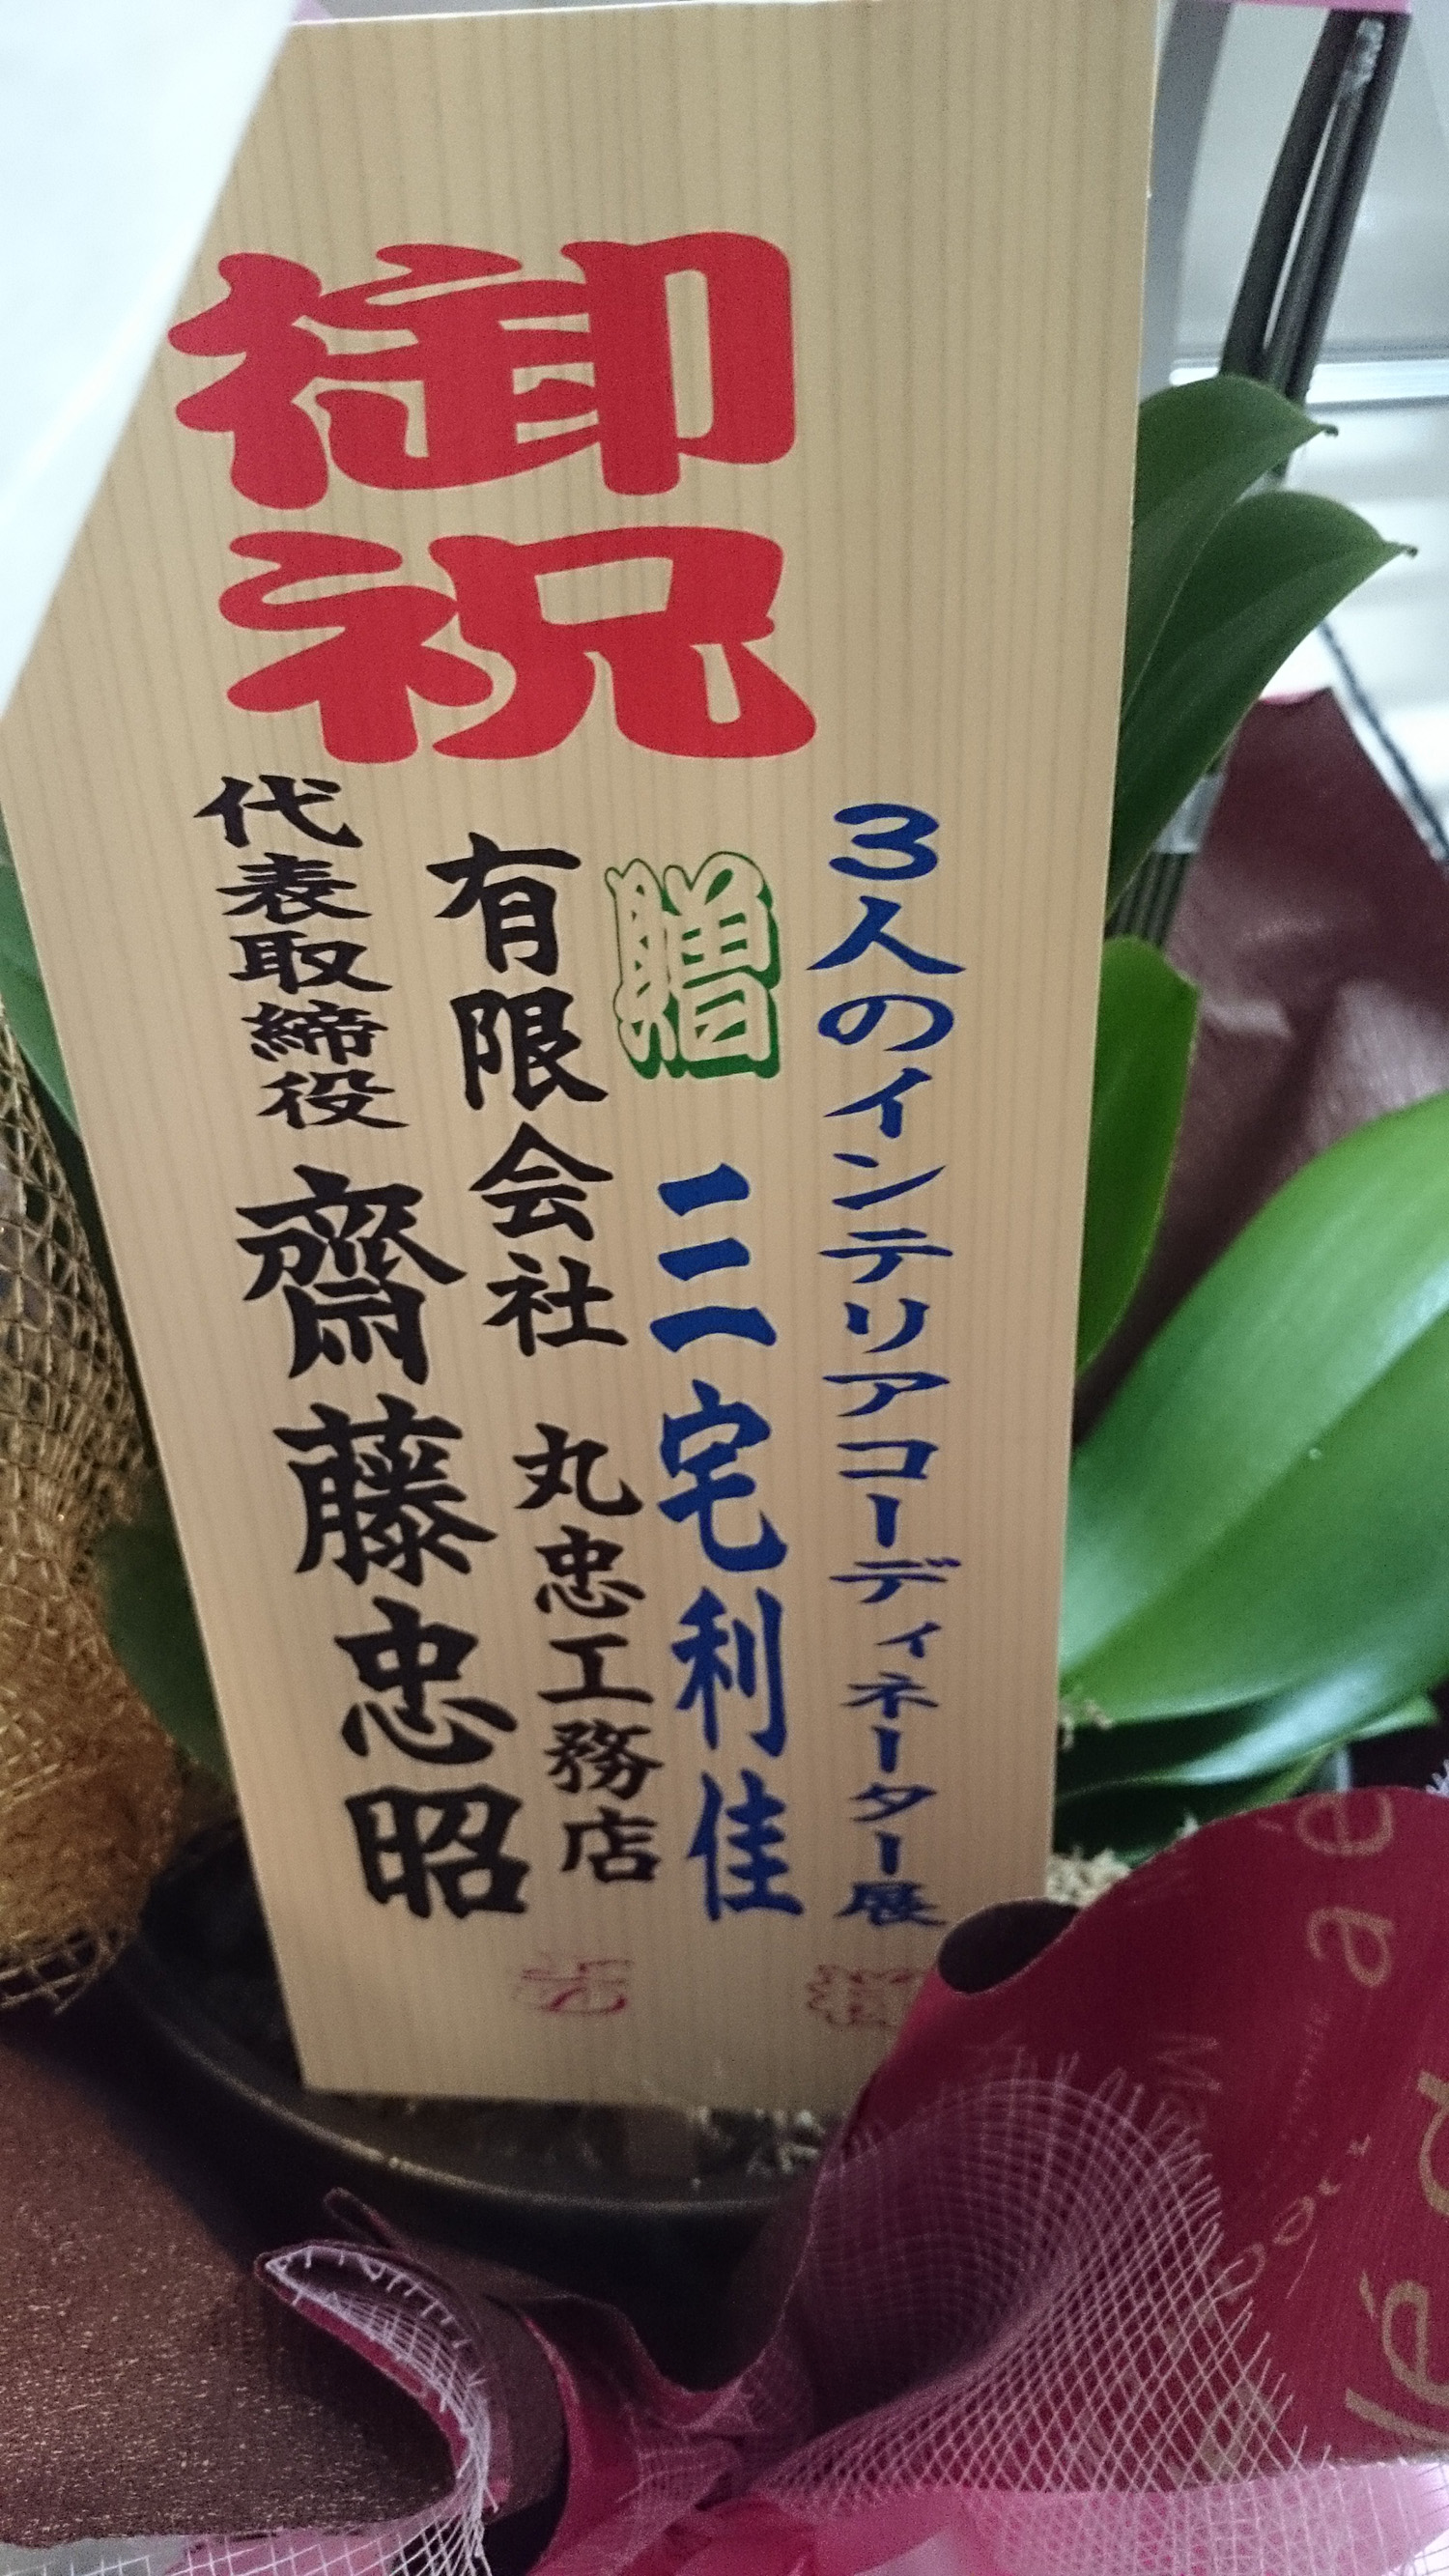 御祝
3人のインテリアコーディネーター展
贈 三宅利佳
有限会社 丸忠工務店
代表取締役 齋藤忠昭